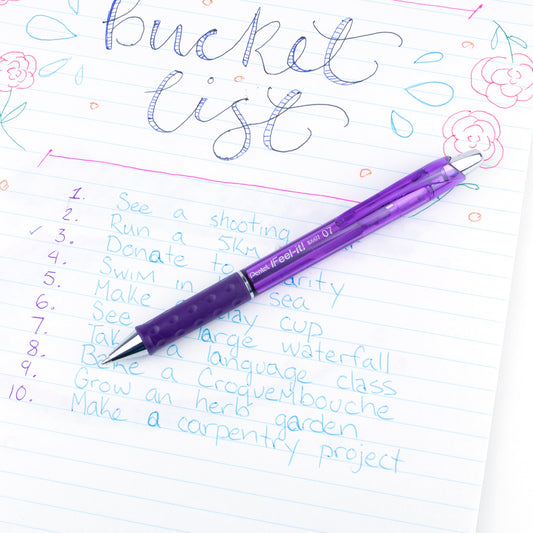 bucket
list
1. See a shooting
2. Run a 5km
✓ 3. Donate to charity
4. Swim in sea
5. Make a clay cup
6. See a large waterfall
7. Take a language class
8. Bake a Croquembouche
9. Grow an herb garden
10. Make a carpentry project
Pentel iFeel-it! BX467 07